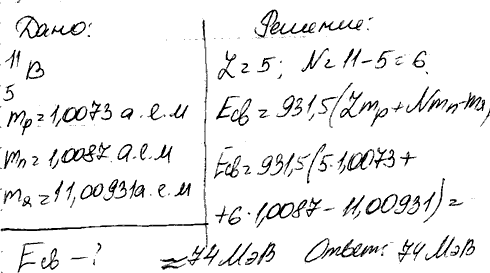 Дано:
¹¹B
5
mp = 1,0073 а.е.м
mn = 1,0087 а.е.м
mя = 11,00931 а.е.м
Eсв - ?
Решение:
Z = 5; N = 11 - 5 = 6.
Eсв = 931,5(Zmp + Nmn - mя)
Eсв = 931,5(5·1,0073 +
+ 6·1,0087 - 11,00931) =
≈ 74 МэВ Ответ: 74 МэВ